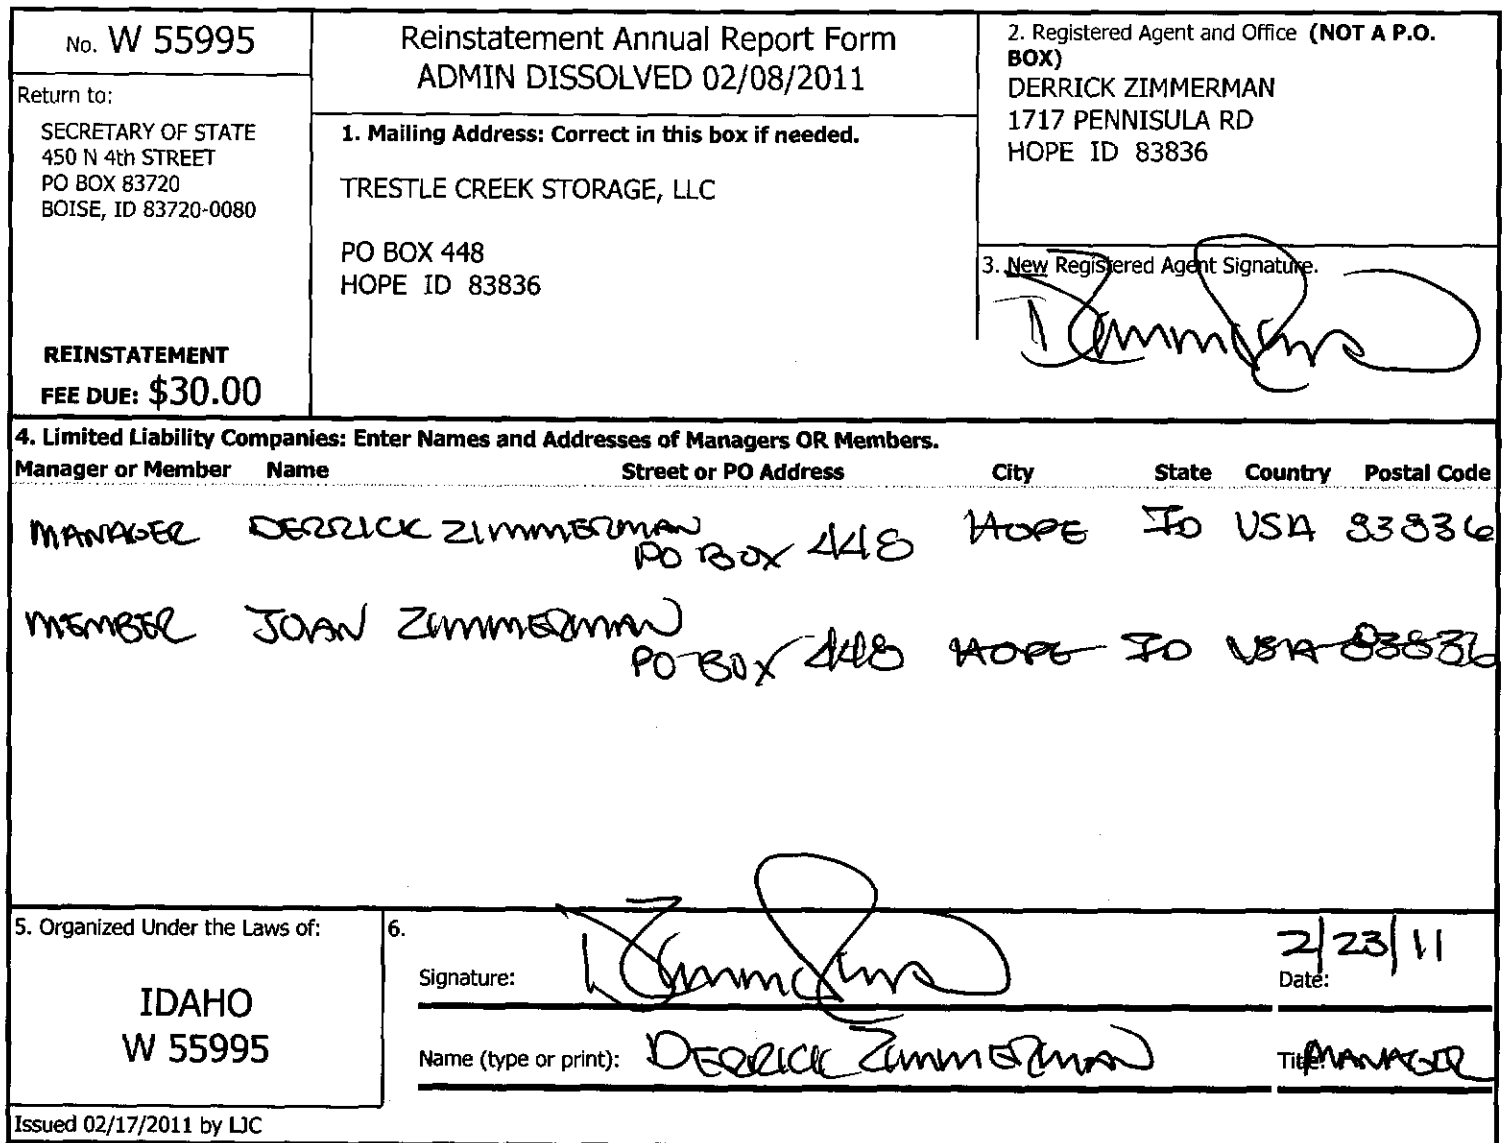 No. W 55995
Return to:
SECRETARY OF STATE
450 N 4th STREET
PO BOX 83720
BOISE, ID 83720-0080
REINSTATEMENT
FEE DUE: $30.00
Reinstatement Annual Report Form
ADMIN DISSOLVED 02/08/2011
1. Mailing Address: Correct in this box if needed.
TRESTLE CREEK STORAGE, LLC
PO BOX 448
HOPE ID 83836
2. Registered Agent and Office (NOT A P.O.
BOX)
DERRICK ZIMMERMAN
1717 PENNISULA RD
HOPE ID 83836
3. New Registered Agent Signature.
4. Limited Liability Companies: Enter Names and Addresses of Managers OR Members.
Manager or Member Name Street or PO Address City State Country Postal Code
MANAGER DERRICK ZIMMERMAN PO BOX 448 HOPE ID USA 83836
MEMBER JOAN ZIMMERMAN PO BOX 448 HOPE ID USA 83836
5. Organized Under the Laws of:
IDAHO
W 55995
6.
Signature:
2/23/11
Date:
Name (type or print): DERRICK ZIMMERMAN
Title: MANAGER
Issued 02/17/2011 by LJC